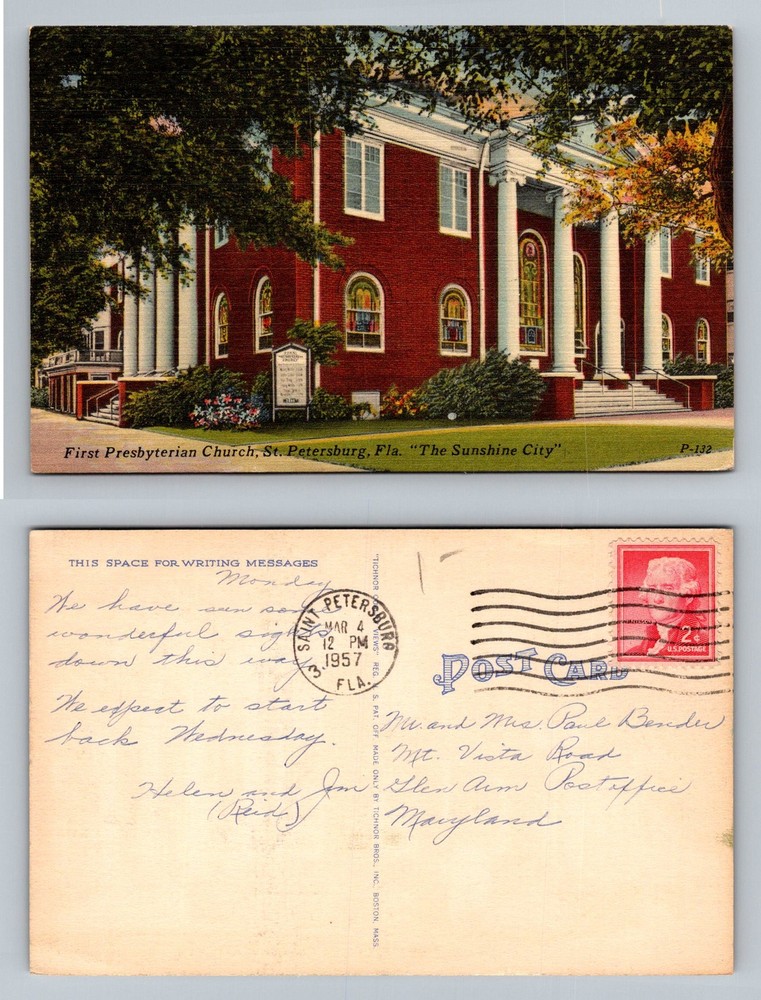 First Presbyterian Church, St. Petersburg, Fla. "The Sunshine City"
P-132
THIS SPACE FOR WRITING MESSAGES
Monday
We have seen some
wonderful sights
down this way
We expect to start
back Wednesday.
Helen and Jim
(Reid)
REG. U. S. PAT. OFF. MADE ONLY BY TICHNOR BROS., INC. BOSTON, MASS.
SAINT PETERSBURG
MAR 4
12 PM
1957
FLA.
3
2¢
U.S. POSTAGE
POST CARD
Mr. and Mrs. Paul Bender
Mt. Vista Road
Glen Arm Postoffice
Maryland